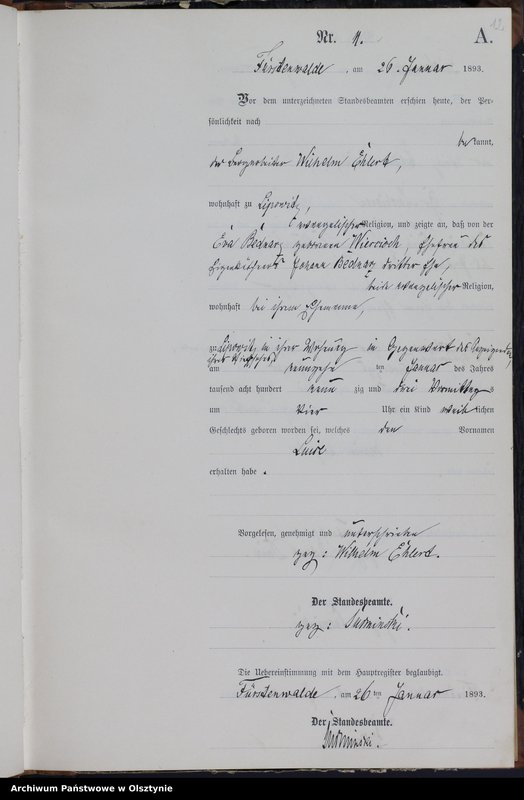 12
Nr. 11. A.
Fürstenwalde, am 26. Januar 1893.
Vor dem unterzeichneten Standesbeamten erschien heute, der Per-
sönlichkeit nach
bekannt,
der Wilhelm Ehlert,
wohnhaft zu Lipowitz,
evangelischer Religion, und zeigte an, daß von der
Eva Bednarz geborenen Wiercioch, Ehefrau des
Johann Bednarz dritter Ehe,
beide evangelischer Religion,
wohnhaft bei ihrem Ehemanne,
zu Lipowitz in ihrer Wohnung in Gegenwart des
am neunzehn ten Januar des Jahres
tausend acht hundert neun zig und drei Vormittags
um vier Uhr ein Kind weiblichen
Geschlechts geboren worden sei, welches den Vornamen
Luise
erhalten habe.
Vorgelesen, genehmigt und unterschrieben
gez: Wilhelm Ehlert.
Der Standesbeamte.
gez:
Die Uebereinstimmung mit dem Hauptregister beglaubigt.
Fürstenwalde, am 26 ten Januar 1893.
Der Standesbeamte.
Archiwum Państwowe w Olsztynie